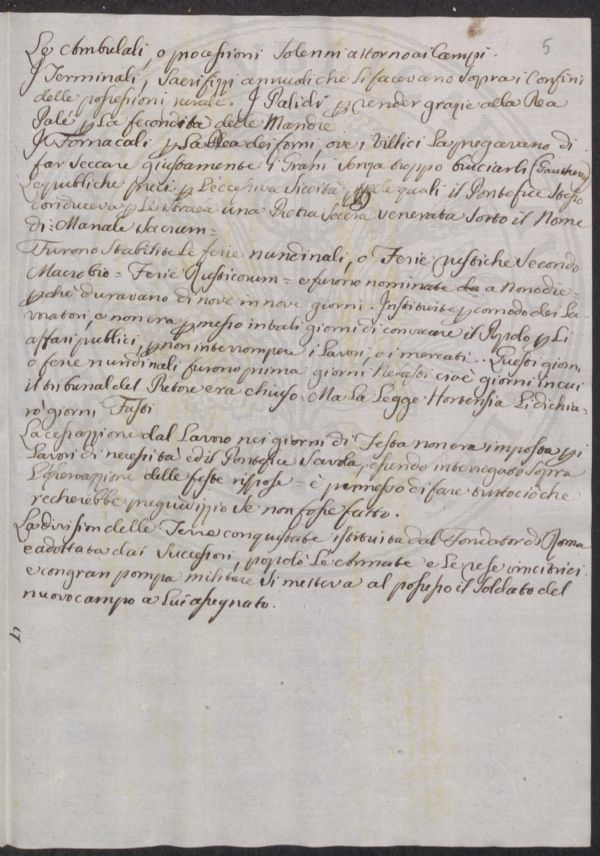 5
Le Ambulali, o processioni solenni attorno ai Campi.
I Terminali, Sacrifizzi annuali che si facevano sopra i Confini
delle possessioni rurale. I Palidi p render grazie alla Dea
Pale p La fecondita delle Mandre
I Fornacali p La Dea dei forni, ove i Villici La pregavano di
far seccare giustamente i Grani senza troppo bruciarli
Le publiche preci p L'eccessiva Siccità nelle quali il Pontefice stesso
conduceva p Le strade una Pietra Sacra venerata sotto il Nome
di: Manale Sacrum=
Furono stabilite Le ferie nundinali, o Ferie rustiche secondo
Macrobio= Ferie Rusticorum= e furono nominate da a Nonodie=
pchè duravano di nove in nove giorni. Instituite p comodo dei La-
voratori, e non era pmesso in tali giorni di convocare il Popolo p Li
affari publici, p non interrompere i Lavori, o i mercati. Questi giorni
o ferie nundinali furono prima giorni Nefasti cioè giorni in cui
il tribunal del Pretore era chiuso. Ma La Legge Hortensia Li dichia=
rò giorni Fasti
La cessazzione dal Lavoro nei giorni di Festa non era imposta p i
Lavori di necessita ed il Pontefice Scevola, essendo interrogato sopra
L'osservazzione delle feste rispose= è permesso di fare tutto ciò che
recherebbe pregiudizio se non fosse fatto.
La division delle Terre conquistate istituita dal Fondator di Roma
e adottata dai Successori, popolò Le armate e Le rese vincitrici
e con gran pompa militare si metteva al possesso il Soldato del
nuovo campo a Lui assegnato.
17